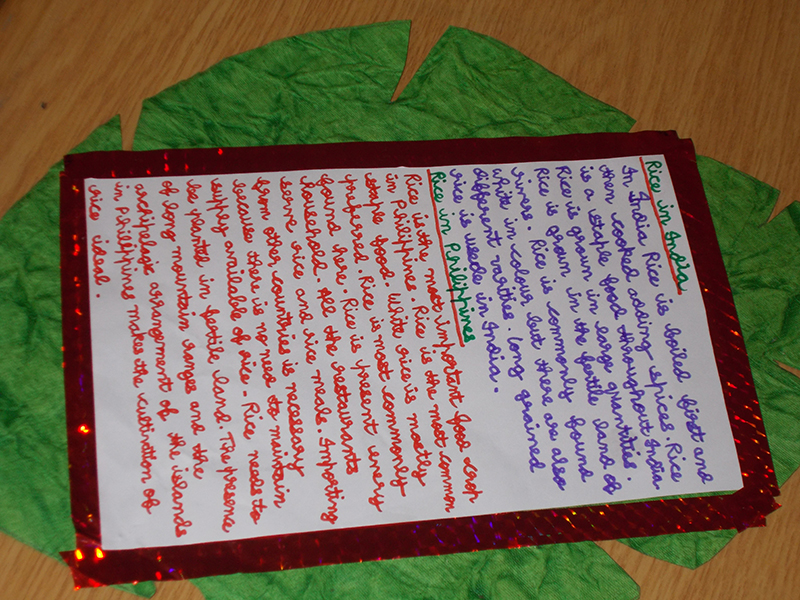 Rice in India
In India Rice is boiled first and
then cooked adding spices. Rice
is a staple food throughout India
Rice is grown in large quantities.
Rice is grown in the fertile land of
rivers. Rice is commonly found
white in colour but there are also
different varities. Long grained
rice is used in India.
Rice in Philippines
Rice is the most important food crop
in Philippines. Rice is the most common
staple food. White rice is mostly
preferred. Rice is most commonly
found here. Rice is present every
household. All the restaurants
serve rice and rice meals. Importing
from other countries is necessary
because there is no need to maintain
supply available of rice. Rice needs to
be planted in fertile land. The presence
of long mountain ranges and the
archipelagic arrangement of the islands
in Philippines makes the cultivation of
rice ideal.